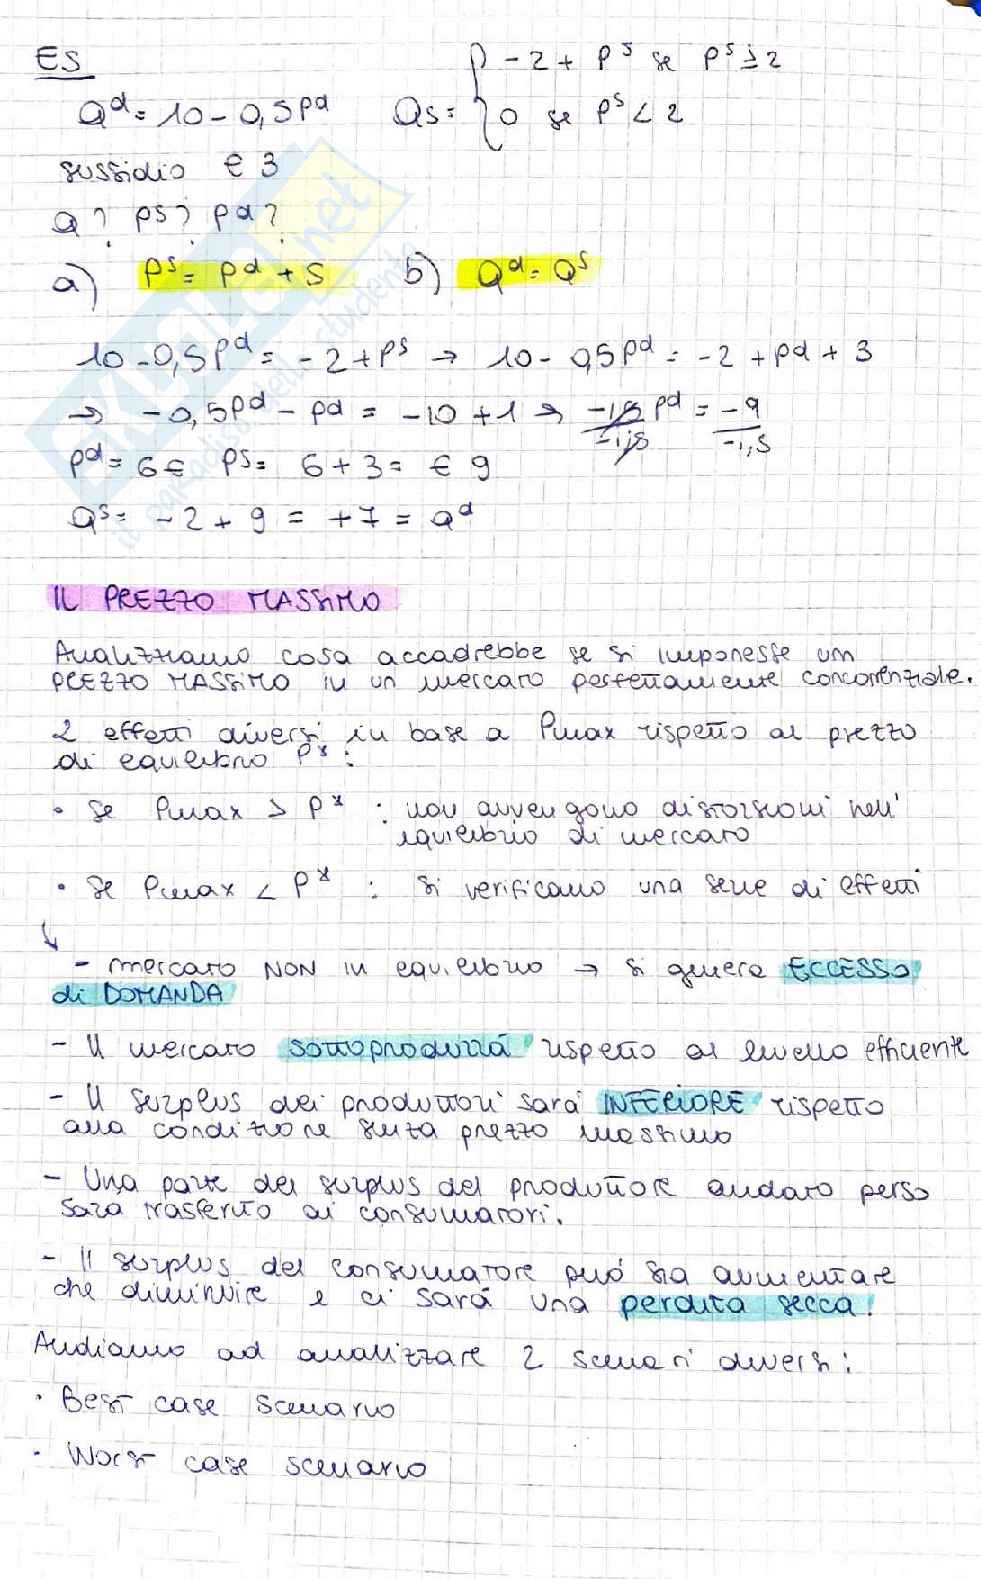 ES
Q^d = 10 - 0,5P^d   Qs = { -2 + P^s se P^s ≥ 2
0 se P^s < 2
sussidio € 3
Q? PS? Pd?
a) P^s = P^d + S   b) Q^d = Q^s
10 - 0,5P^d = -2 + P^s → 10 - 0,5P^d = -2 + Pd + 3
→ -0,5P^d - Pd = -10 + 1 → -1,5 P^d / -1,5 = -9 / -1,5
P^d = 6€ PS = 6 + 3 = € 9
Q^s = -2 + 9 = +7 = Q^d
IL PREZZO MASSIMO
Analizziamo cosa accadrebbe se si imponesse un
PREZZO MASSIMO in un mercato perfettamente concorrenziale.
2 effetti diversi in base a Pmax rispetto al prezzo
di equilibrio P* :
• Se Pmax > P* : non avvengono distorsioni nell'
equilibrio di mercato
• Se Pmax < P* : si verificano una serie di effetti
↓
- mercato NON in equilibrio → si genera ECCESSO
di DOMANDA
- Il mercato sottoprodurrà rispetto al livello efficiente
- Il surplus dei produttori sarà INFERIORE rispetto
alla condizione senza prezzo massimo
- Una parte del surplus del produttore andato perso
sarà trasferito ai consumatori.
- Il surplus del consumatore può sia aumentare
che diminuire e ci sarà una perdita secca!
Andiamo ad analizzare 2 scenari diversi:
• Best case scenario
• Worst case scenario